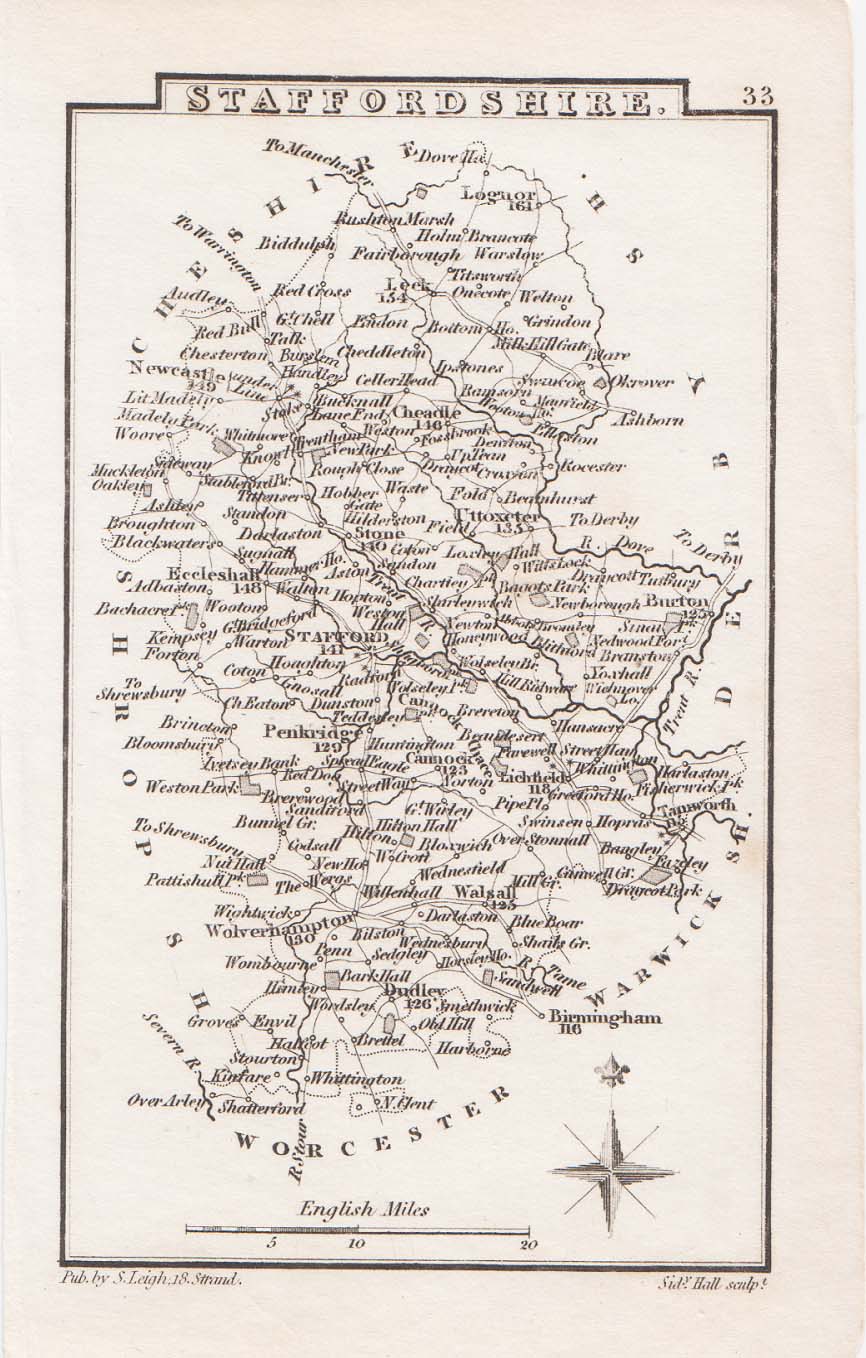 STAFFORDSHIRE.
33
To Manchester
CHESHIRE
Dove Hd.
Lognor
161
Rushton Marsh
Holm
Brancote
Biddulph
Fairborough
Warslow
To Warrington
Titsworth
Leek
154
Onecote
Welton
Audley
Red Cross
Red Bull
Gt. Chell
Endon
Bottom Ho.
Grindon
Talk
Mill Hill Gate
Chesterton
Burslem
Cheddleton
Blare
Handley
Ipstones
Newcastle
under
Line
149
Celler Head
Swancoe
Okrover
Ramsorn
Mayfield
Lit Madely
Bucknall
Stoke
Wootton Lo.
Ashborn
Madely Park
Lane End
Cheadle
146
Ellaston
Woore
Whitmore
Trentham
Weston
Fossbrook
Denston
Knowl
New Park
Up Tean
Muckleton
Sideway
Rough Close
Draycot
Croxton
Rocester
Oakley
Stableford Br.
Tittenser
Hobber
Gate
Waste
Fold
Beamhurst
Ashley
Standon
Hilderston
Uttoxeter
135
To Derby
Broughton
Darlaston
Stone
140
Field
Blackwaters
Coton
R. Dove
To Derby
Sugnall
Loxley Hall
Hammer Ho.
Aston
Sandon
Wills Lock
Eccleshall
148
Draycott
Tutbury
Chartley Pk.
Adbaston
Walton
Hopton
Trent R.
Bagots Park
Bachacre Pk.
Wooton
Weston
Hall
Shirlenwich
Newborough
Burton
125
Gt. Bridgeford
Newton
Abbots Bromley
Sinai Pk.
Kempsey
STAFFORD
141
Honeywood
Blithford
Nedwood For.
Forton
Warton
Branston
Shugborough
Wolseley Br.
Houghton
Yoxhall
Coton
Radford
Wichnover
Lo.
To
Shrewsbury
Gnosall
Wolseley Pk.
Hill Ridware
Trent R.
Ch Eaton
Dunston
Teddesley
Cannock
Chace
Brereton
Brineton
Hansacre
Penkridge
129
Beaudesert
Bloomsbury
Huntington
Farewell
Street Hay
Ivetsey Bank
Spread Eagle
Cannock
123
Whittington
Harlaston
Red Dog
Lichfield
118
Weston Park
Street Way
Norton
Fisherwick Pk.
Brerewood
Greeford Ho.
Sandiford
Gt. Wirley
Pipe Pl.
Tamworth
Bunnel Gr.
Hilton Hall
Swinsen
Hopras
To Shrewsbury
Codsall
Hilton
Bloxwich
Over Stonnall
Bangley
Nut Hall
New Ho.
W. Croft
Fazeley
Pattishull Pk.
The Wergs
Wednesfield
Mill Gr.
Canwell Gr.
Willenhall
Walsall
125
Draycot Park
Wightwick
Darlaston
Blue Boar
Wolverhampton
130
Bilston
Wednesbury
Shails Gr.
Penn
Sedgley
Horsley Ho.
R. Tame
Wombourne
Bark Hall
Sandwell
Himley
Dudley
126
Smethwick
Wordsley
Groves
Envil
Old Hill
Birmingham
116
Halfcot
Brettel
Harborne
Severn R.
Stourton
Kinfare
Whittington
Over Arley
Shatterford
N. Clent
R. Stour
SHROPSHIRE
DERBYSH.
WARWICK SH.
WORCESTER
English Miles
5
10
20
Pub. by S. Leigh, 18. Strand.
Sidy. Hall sculpt.